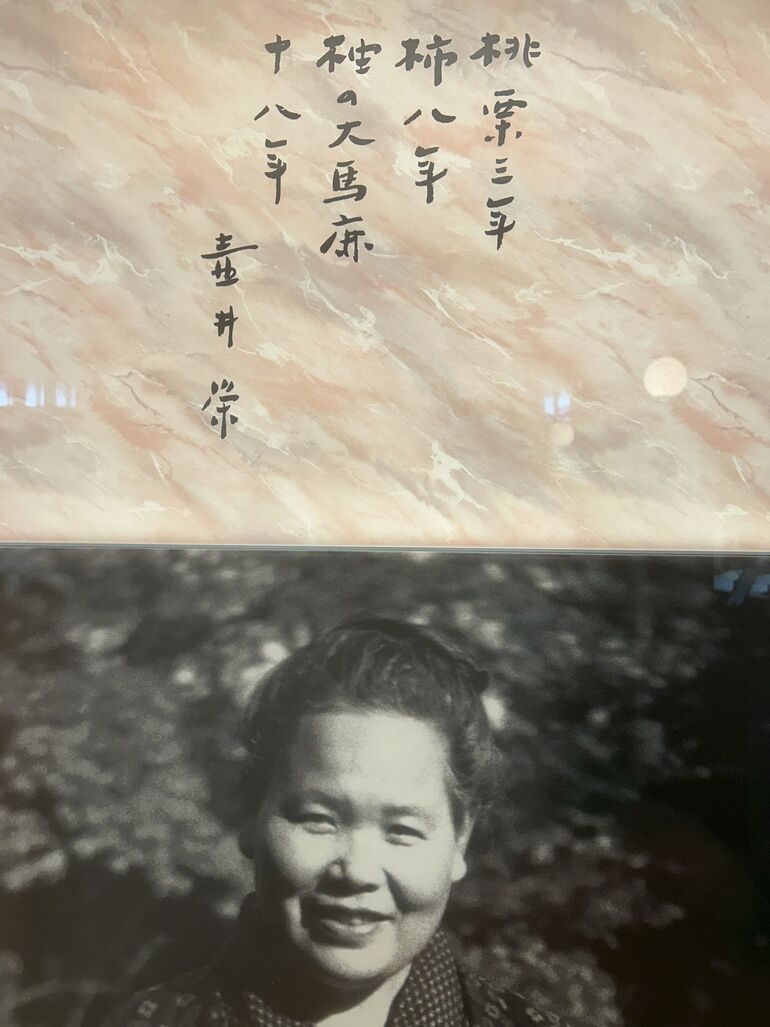 桃栗三年
柿八年
柚の大馬鹿
十八年
壺井栄